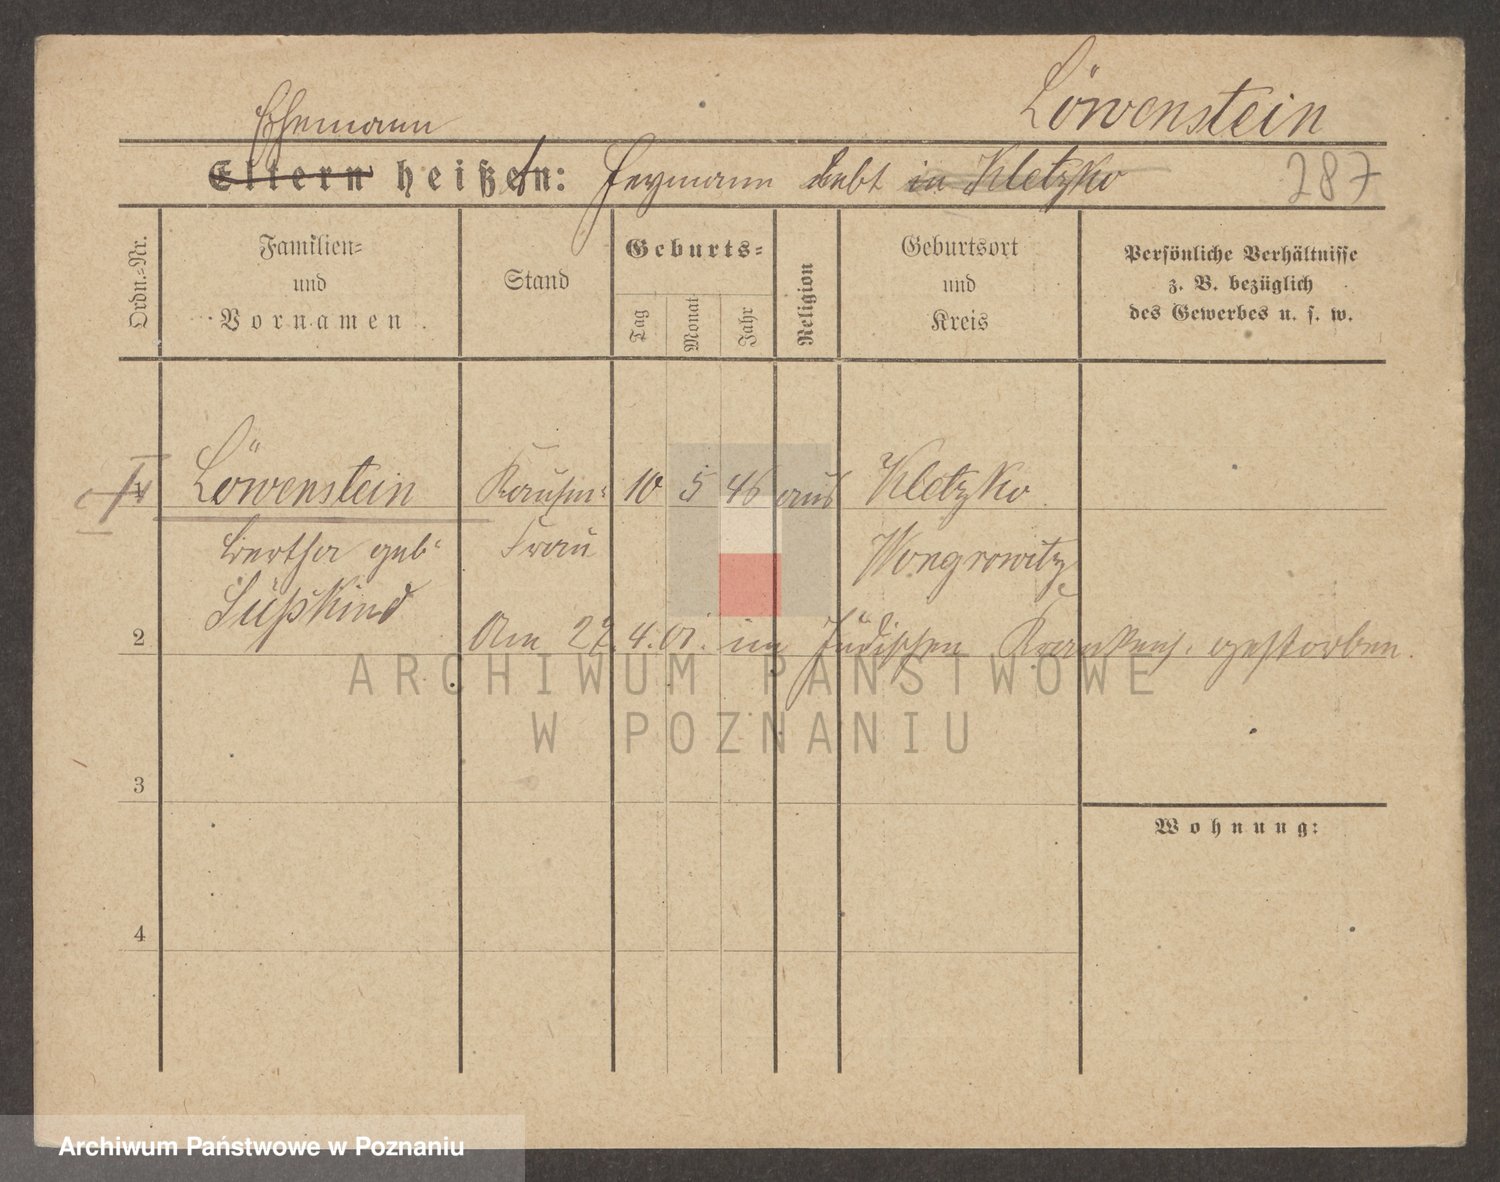 Löwenstein
Ehemann
Eltern heißen: Heymann lebt in Kletzko
287
Ordn.-Nr.
Familien-
und
Vornamen
Stand
Geburts-
Tag
Monat
Jahr
Religion
Geburtsort
und
Kreis
Persönliche Verhältnisse
z. B. bezüglich
des Gewerbes u. s. w.
1 Löwenstein Kaufm: 10 5 46 Kletzko
Bertha geb: Frau Wongrowitz
Süßkind
2 Am 27.4.01. im Jüdischen Krankenh. gestorben.
ARCHIWUM PAŃSTWOWE
W POZNANIU
3
Wohnung:
4
Archiwum Państwowe w Poznaniu